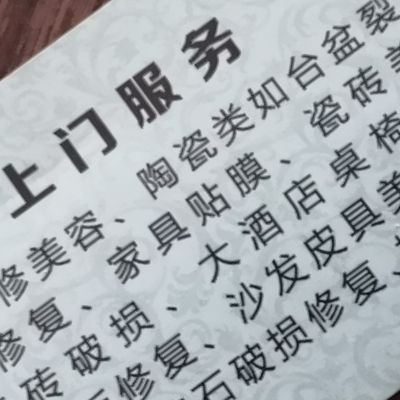 上门服务
修美容、陶瓷类如台盆裂
修复、家具贴膜、瓷砖美
砖破损、大酒店桌椅
修复、沙发皮具美
石破损修复、